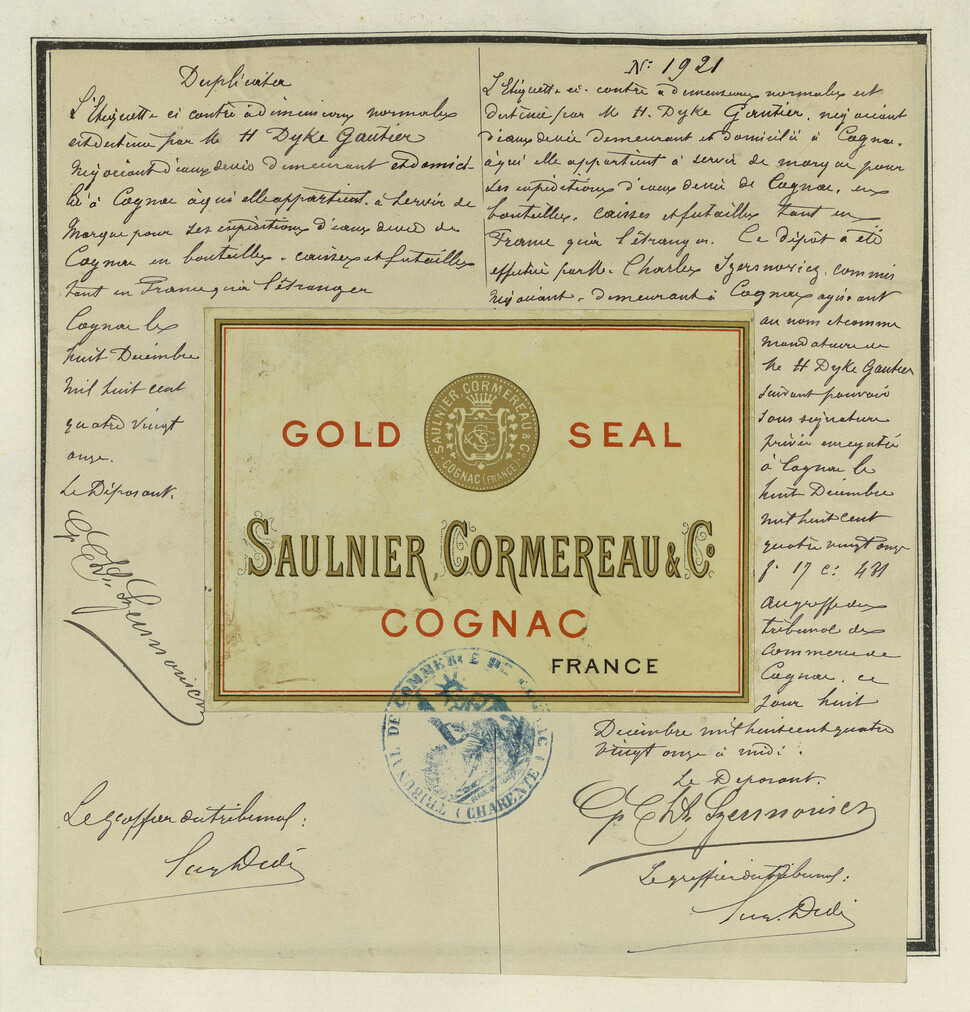 Duplicata
L'Etiquette ci contre à dimensions normales
est destinée par M H Dyke Gautier
Négociant d'eaux de vie demeurant et domici-
lié à Cognac à qui elle appartient à servir de
Marque pour ses expéditions d'eaux de vie de
Cognac en bouteilles, caisses et futailles
tant en France qu'à l'étranger
Cognac le
huit Décembre
mil huit cent
quatre vingt
onze.
Le Déposant.
Le greffier du tribunal:
No: 1921
L'Etiquette ci-contre à dimensions normales est
destinée par M H. Dyke Gautier, négociant
d'eaux de vie demeurant et domicilié à Cognac,
à qui elle appartient à servir de marque pour
ses expéditions d'eaux de vie de Cognac, en
bouteilles, caisses et futailles tant en
France qu'à l'étranger. Ce dépôt a été
effectué par M. Charles commis
négociant, demeurant à Cognac agissant
au nom et comme
mandataire de
M H Dyke Gautier
suivant pouvoir
sous signature
privée enregistré
à Cognac le
huit Décembre
mil huit cent
quatre vingt onze
f° 17 c: 421
au greffe du
tribunal de
Commerce de
Cognac, ce
jour huit
Décembre mil huit cent quatre
vingt onze à midi.
Le Déposant.
Le greffier du tribunal:
SAULNIER CORMEREAU & Co
COGNAC (FRANCE)
GOLD SEAL
SAULNIER, CORMEREAU & Co
COGNAC
FRANCE
TRIBUNAL DE COMMERCE DE COGNAC
(CHARENTE)